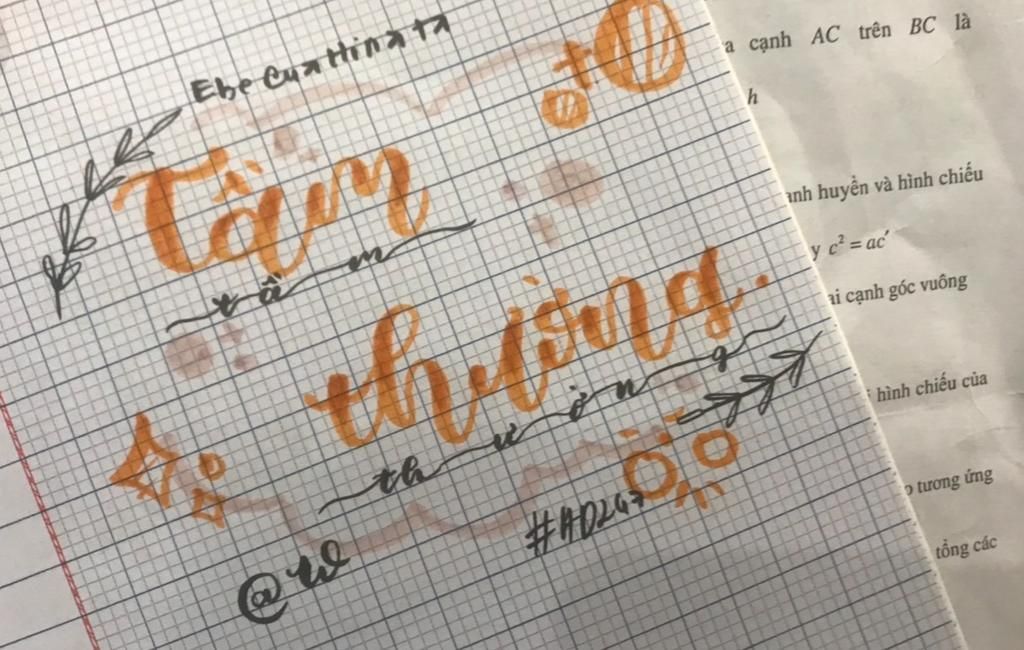 EbeCuaHinata
Tầm
tầm
thường.
thường
@W
#AD247
a cạnh AC trên BC là
h
anh huyền và hình chiếu
y c² = ac′
ai cạnh góc vuông
hình chiếu của
tương ứng
tổng các